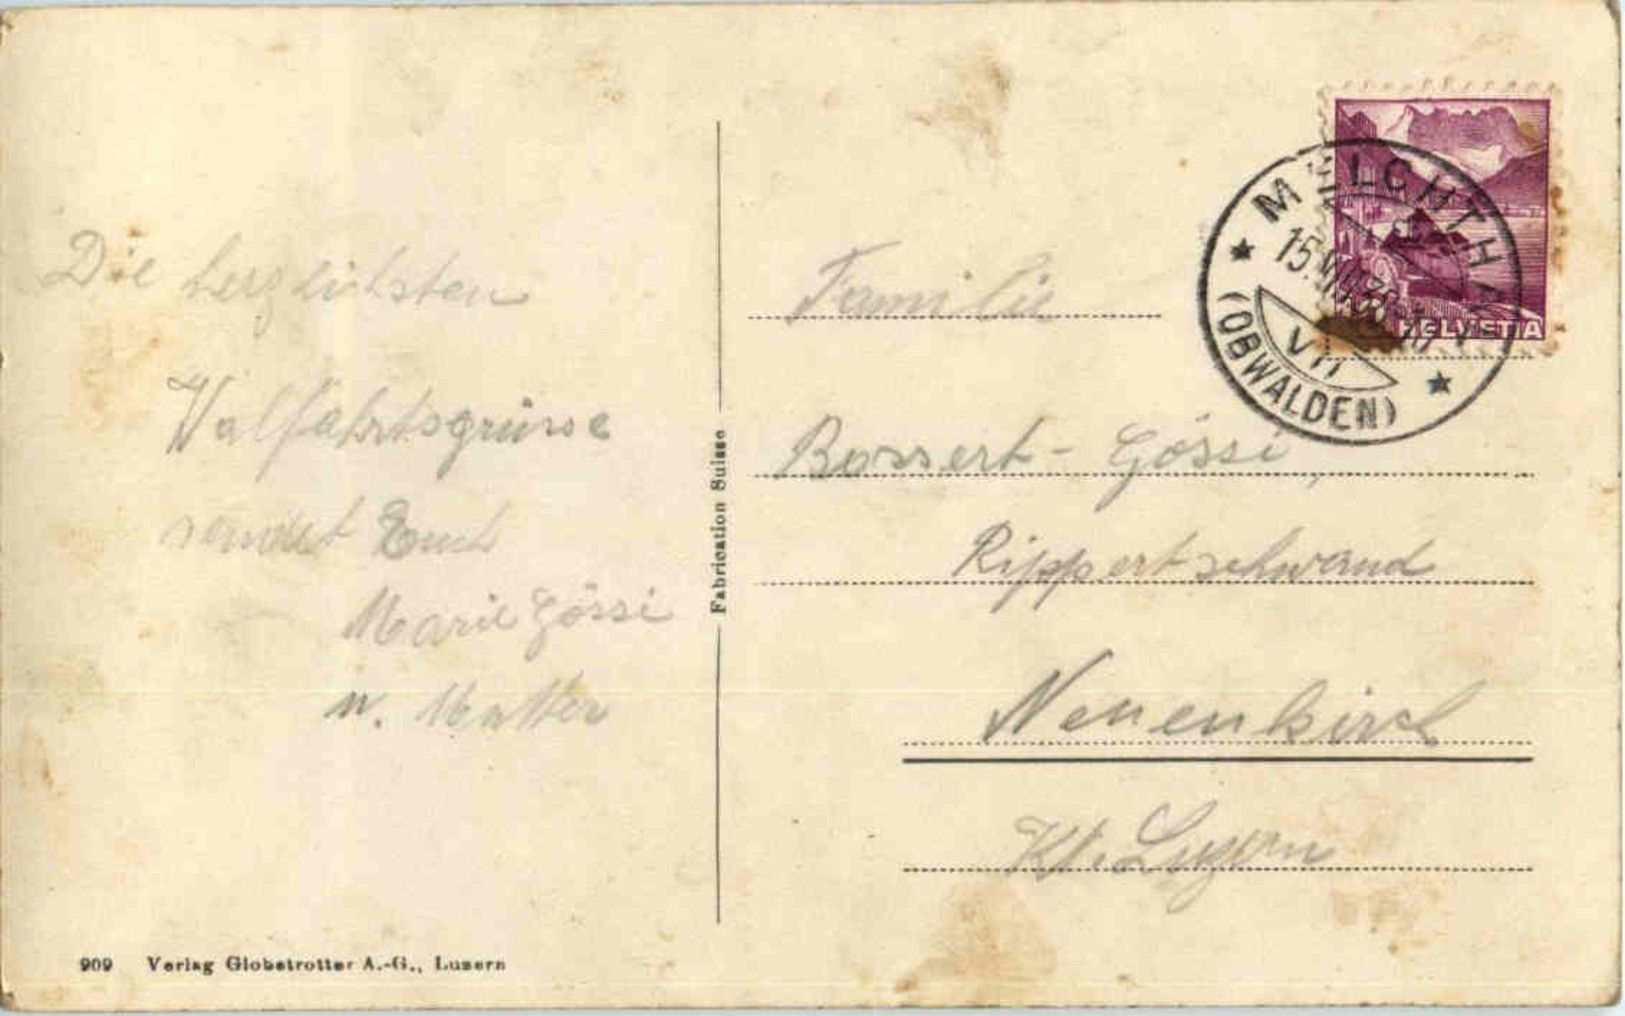 Die herzlichsten
Walfahrtsgrüsse
sendet Euch
Marie Gössi
u. Mutter
909 Verlag Globetrotter A.-G., Luzern
Fabrication Suisse
MELCHTHAL
15.
VII
(OBWALDEN)
HELVETIA
Familie
Bossert-Gössi,
Rippertschwand
Neuenkirch
Kt. Luzern